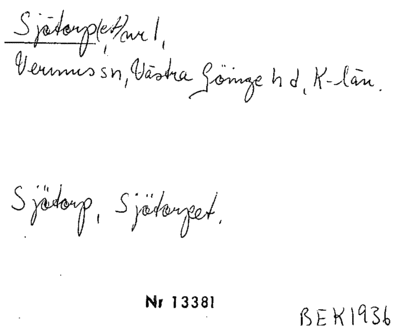 Sjötorp(et) nr 1,
Verums sn, Västra Göinge hd, K-län.
Sjötorp, Sjötorpet.
Nr 13381
BEK1936